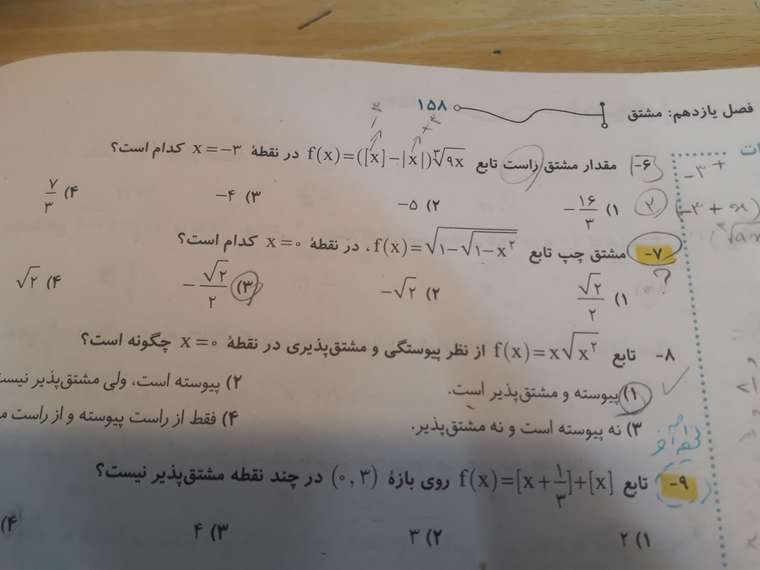 فصل یازدهم: مشتق ۱۵۸
۶- مقدار مشتق راست تابع f(x)=([x]-|x|)∛۹x در نقطهٔ x=-۳ کدام است؟
۱) -۱۶/۳ ۲) -۵ ۳) -۴ ۴) ۷/۳
۷- مشتق چپ تابع f(x)=√(۱-√(۱-x²))، در نقطهٔ x=۰ کدام است؟
۱) √۲/۲ ۲) -√۲ ۳) -√۲/۲ ۴) √۲
?
۸- تابع f(x)=x√x² از نظر پیوستگی و مشتق‌پذیری در نقطهٔ x=۰ چگونه است؟
۱) پیوسته و مشتق‌پذیر است. ۲) پیوسته است، ولی مشتق‌پذیر نیست
۳) نه پیوسته است و نه مشتق‌پذیر. ۴) فقط از راست پیوسته و از راست
۹- تابع f(x)=[x+۱/۳]+[x] روی بازهٔ (۰,۳) در چند نقطه مشتق‌پذیر نیست؟
۱) ۲ ۲) ۳ ۳) ۴ ۴)